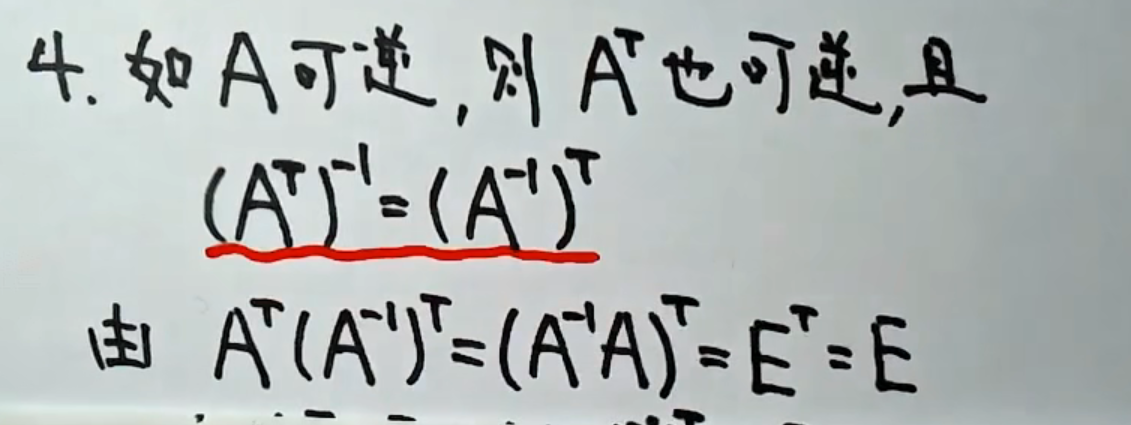 4. 如 A 可逆, 则 Aᵀ 也可逆, 且
(Aᵀ)⁻¹ = (A⁻¹)ᵀ
由 Aᵀ(A⁻¹)ᵀ = (A⁻¹A)ᵀ = Eᵀ = E